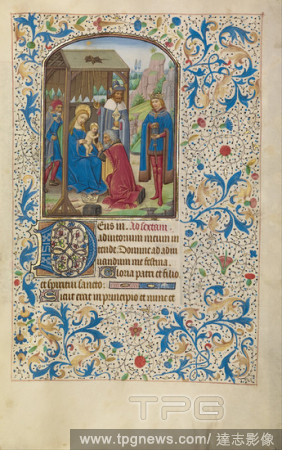 Eus in. Ad sextam
adiutorium meum in
tende. Domine ad adiu
uandum me festina
Gloria patri et filio
et spiritui sancto:
Sicut erat in principio et nunc et
TPG
www.tpgnews.com/達志影像